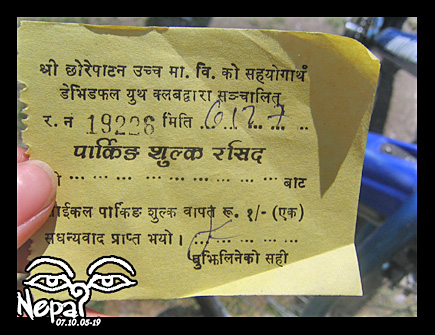 श्री छोरेपाटन उच्च मा. वि. को सहयोगार्थ
डेभिडफल युथ क्लबद्वारा सञ्चालित
र. नं 19226 मिति 6/27
पार्किङ शुल्क रसिद
श्री ... ... ... ... ... ... ... ... बाट
साईकल पार्किङ शुल्क वापत रू. १/- (एक)
सधन्यवाद प्राप्त भयो ।
बुझिलिनेको सही
Nepal
07.10.05-19